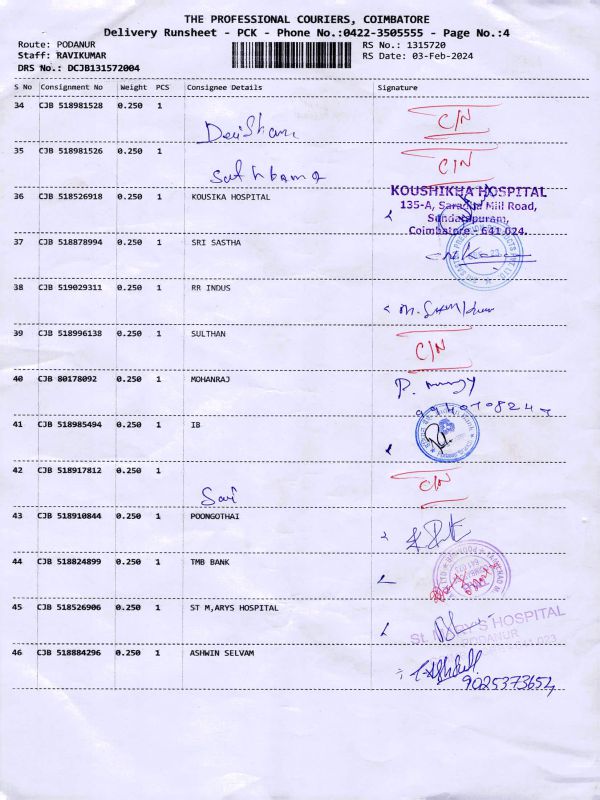 THE PROFESSIONAL COURIERS, COIMBATORE
Delivery Runsheet - PCK - Phone No.:0422-3505555 - Page No.:4
Route: PODANUR RS No.: 1315720
Staff: RAVIKUMAR RS Date: 03-Feb-2024
DRS No.: DCJB131572004
S No Consignment No Weight PCS Consignee Details Signature
34 CJB 518981528 0.250 1 C/N
35 CJB 518981526 0.250 1 C/N
Sathbama
36 CJB 518526918 0.250 1 KOUSIKA HOSPITAL KOUSHIKHA HOSPITAL
135-A, Sarada Mill Road,
Sundarapuram,
Coimbatore - 641 024.
37 CJB 518878994 0.250 1 SRI SASTHA
38 CJB 519029311 0.250 1 RR INDUS
39 CJB 518996138 0.250 1 SULTHAN C/N
40 CJB 80178092 0.250 1 MOHANRAJ
41 CJB 518985494 0.250 1 IB
42 CJB 518917812 0.250 1 C/N
Sai
43 CJB 518910844 0.250 1 POONGOTHAI
44 CJB 518824899 0.250 1 TMB BANK
45 CJB 518526906 0.250 1 ST M,ARYS HOSPITAL St. MARY'S HOSPITAL
PODANUR
46 CJB 518884296 0.250 1 ASHWIN SELVAM
9025373654